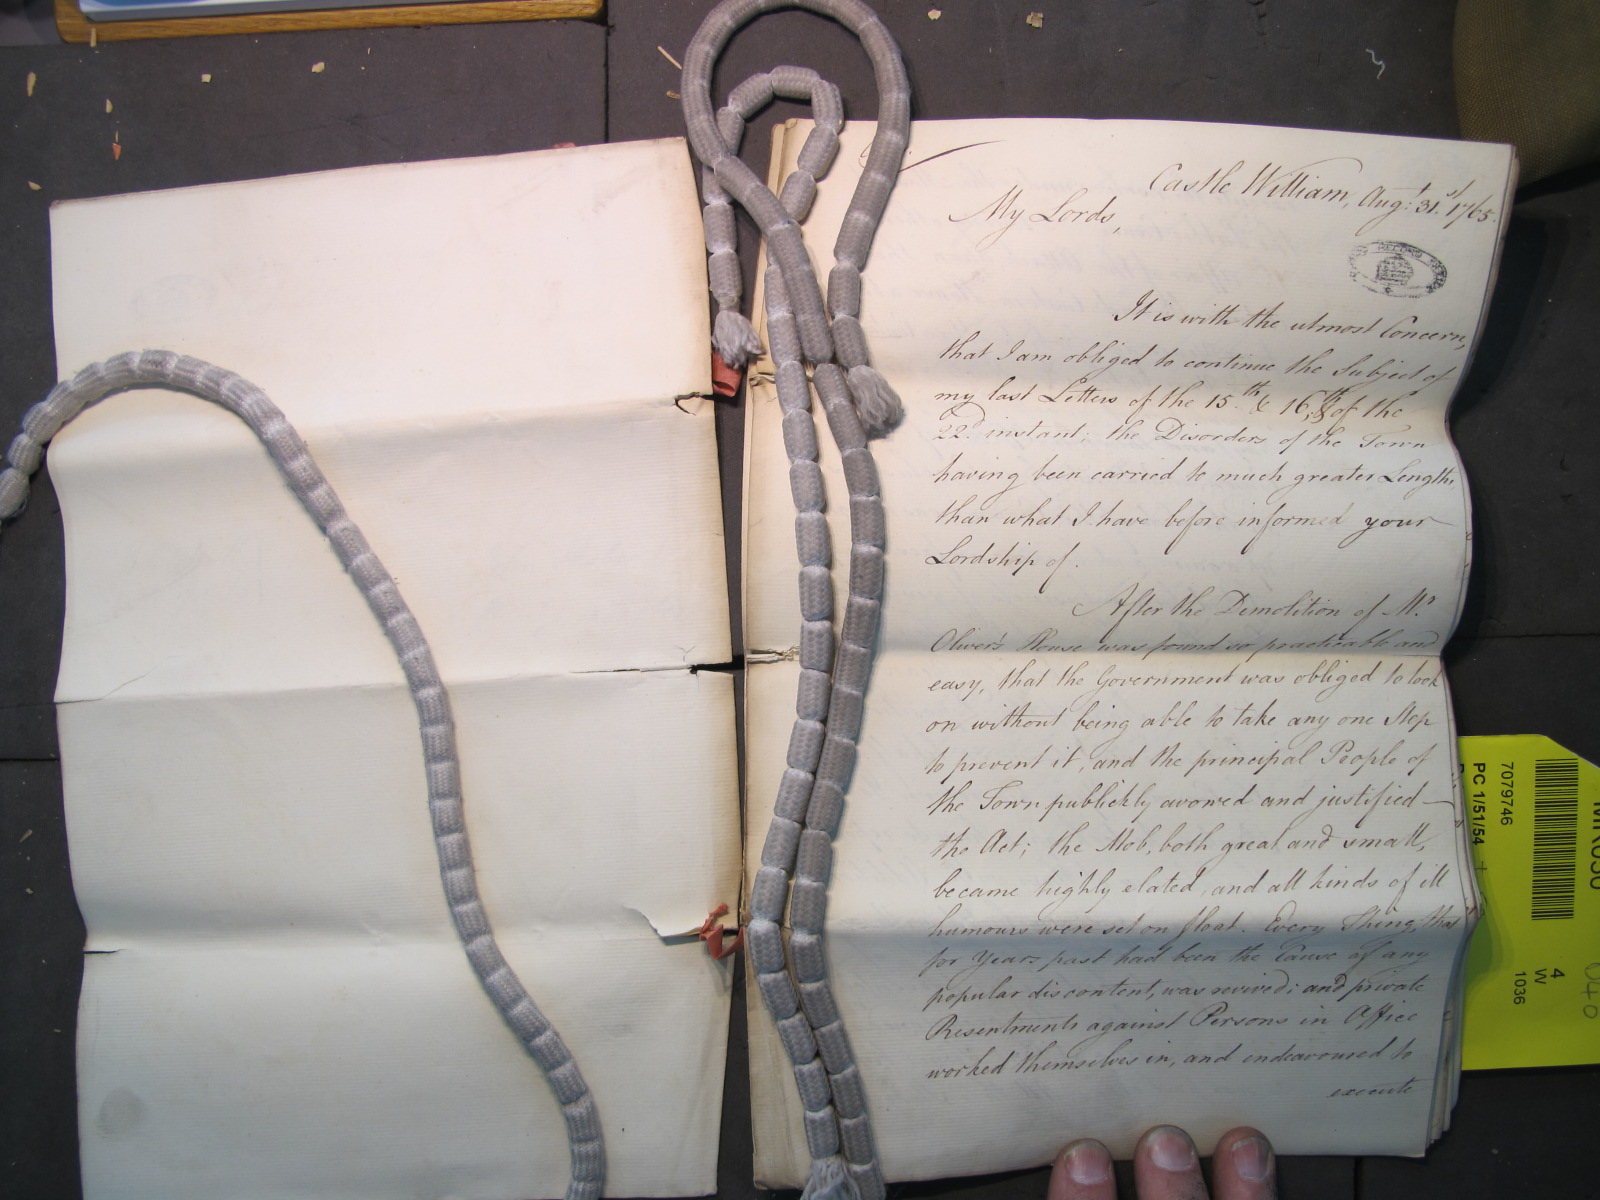 Castle William, Augt: 31.st 1765.
My Lords,
It is with the utmost Concern,
that I am obliged to continue the Subject of
my last Letters of the 15.th & 16,th & of the
22.d instant; the Disorders of the Town
having been carried to much greater Lengths
than what I have before informed your
Lordship of.
After the Demolition of Mr.
Oliver's House was found so practicable and
easy, that the Government was obliged to look
on without being able to take any one Step
to prevent it, and the principal People of
the Town publickly avowed and justified
the Act; the Mob, both great and small,
became highly elated, and all kinds of ill
humours were set on float. Every Thing, that
for Years past had been the Cause of any
popular discontent, was revived; and private
Resentments against Persons in Office
worked themselves in, and endeavoured to
execute
7079746
PC 1/51/54
4
W
1036